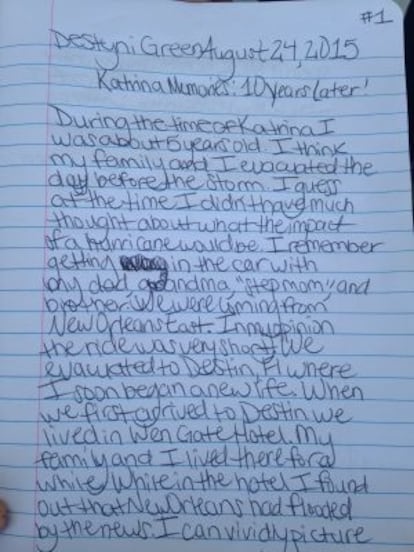 #1
Destyni Green August 24, 2015
Katrina Mumories: 10 years Later!
During the time of Katrina I
was about 5 years old. I think
my family and I evacuated the
day before the storm. I guess
at the time I didn't have much
thought about what the impact
of a hurricane would be. I remember
getting in the car with
my dad grandma, "step mom", and
brother. We were coming from
New Orleans East. In my opinion
the ride was very short. We
evacuated to Destin, Fl where
I soon began a new life. When
we first arrived to Destin we
lived in Wen Gate Hotel. My
family and I lived there for a
while. While in the hotel I found
out that New Orleans had flooded
by the news. I can vividly picture